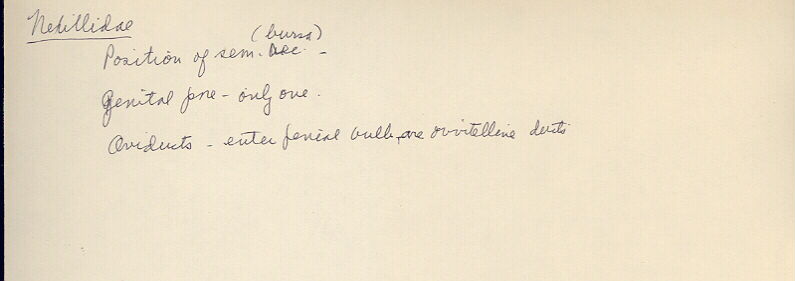 Nekillidae
(bursa)
Position of sem. rec. -
Genital pre - only one.
Oviducts - enter penial bulb, are ovovitelline ducts